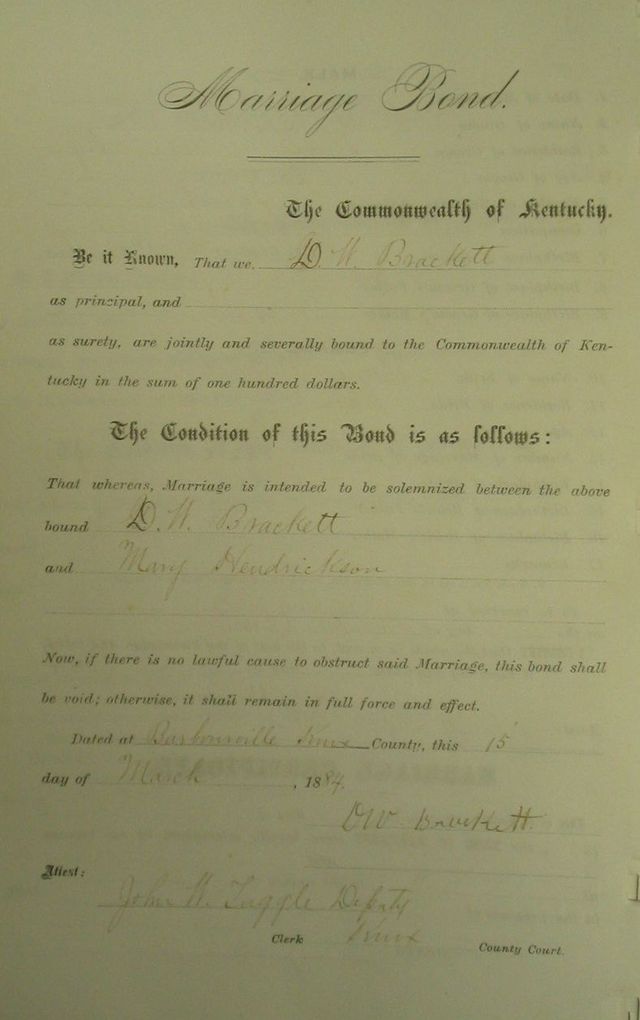 Marriage Bond.
The Commonwealth of Kentucky.
Be it Known, That we D. W. Brackett
as principal, and
as surety, are jointly and severally bound to the Commonwealth of Ken-
tucky in the sum of one hundred dollars.
The Condition of this Bond is as follows:
That whereas, Marriage is intended to be solemnized between the above
bound D. W. Brackett
and Mary Hendrickson
Now, if there is no lawful cause to obstruct said Marriage, this bond shall
be void; otherwise, it shall remain in full force and effect.
Dated at Barbourville Knox County, this 15
day of March, 1884.
D W Brackett
Attest:
John W. Tuggle Deputy
Clerk Knox County Court.